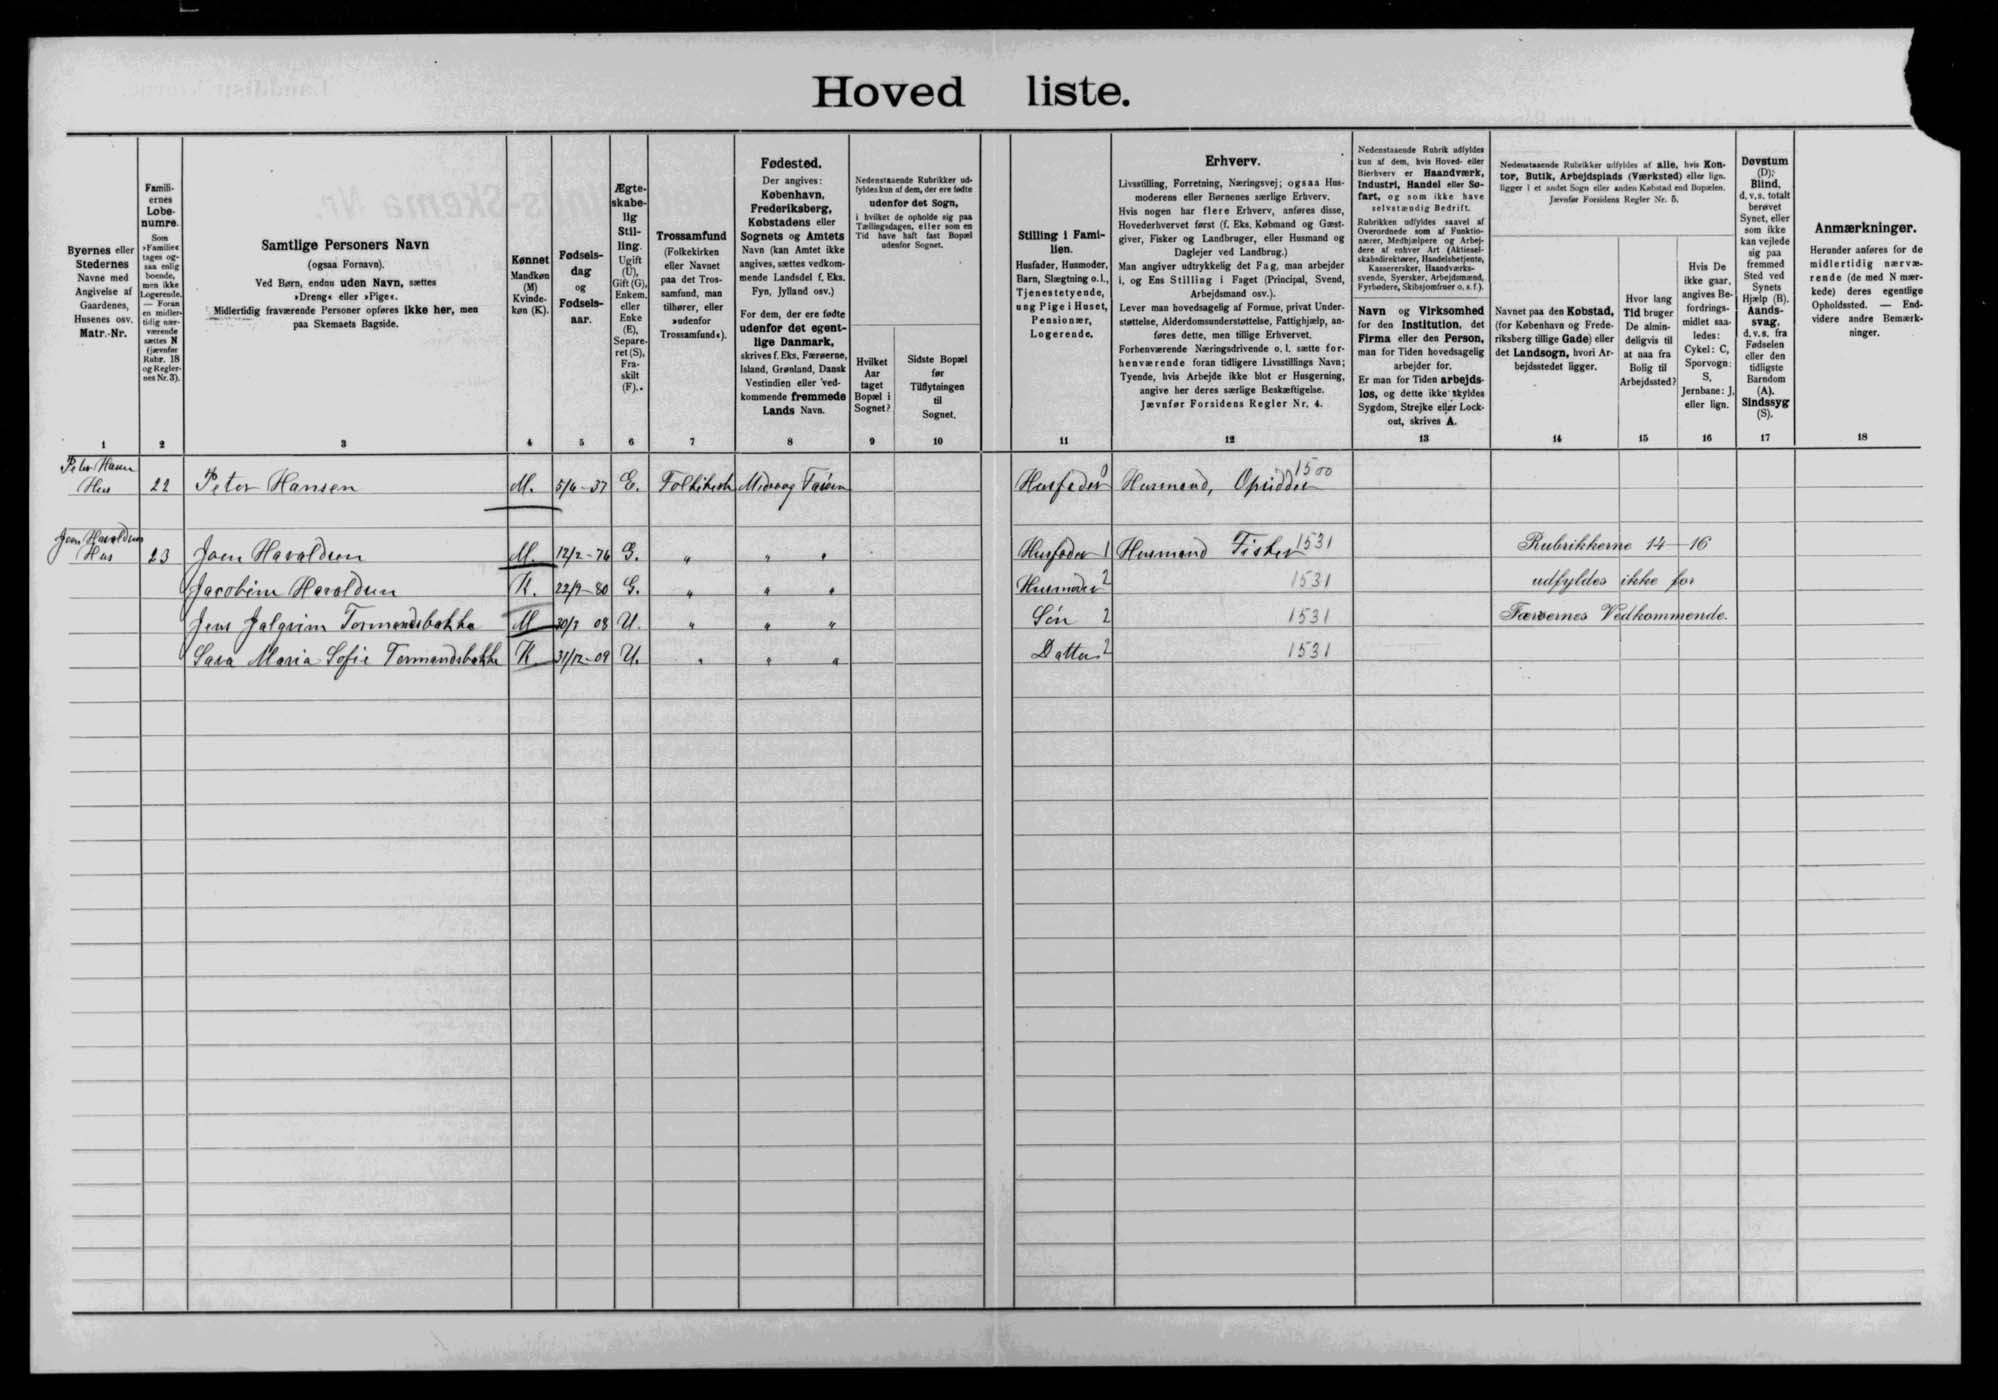 Hoved liste.
Byernes eller
Stedernes
Navne med
Angivelse af
Gaardenes,
Husenes osv.
Matr.-Nr.
Famili-
ernes
Løbe-
numre.
Som
»Familie«
tages og-
saa enlig
boende,
men ikke
Logerende.
— Foran
en midler-
tidig nær-
værende
sættes N
(jævnfør
Rubr. 18
og Regler-
nes Nr. 3).
Samtlige Personers Navn
(ogsaa Fornavn).
Ved Børn, endnu uden Navn, sættes
»Dreng« eller »Pige«.
Midlertidig fraværende Personer opføres ikke her, men
paa Skemaets Bagside.
Kønnet
Mandkøn
(M)
Kvinde-
køn (K).
Fødsels-
dag
og
Fødsels-
aar.
Ægte-
skabe-
lig
Stil-
ling.
Ugift
(U),
Gift (G),
Enkem.
eller
Enke
(E),
Separe-
ret (S),
Fra-
skilt
(F).
Trossamfund
(Folkekirken
eller Navnet
paa det Tros-
samfund, man
tilhører, eller
»udenfor
Trossamfund«).
Fødested.
Der angives:
København,
Frederiksberg,
Købstadens eller
Sognets og Amtets
Navn (kan Amtet ikke
angives, sættes vedkom-
mende Landsdel f. Eks.
Fyn, Jylland osv.)
For dem, der ere fødte
udenfor det egent-
lige Danmark,
skrives f. Eks. Færøerne,
Island, Grønland, Dansk
Vestindien eller ved-
kommende fremmede
Lands Navn.
Nedenstaaende Rubrikker ud-
fyldes kun af dem, der ere fødte
udenfor det Sogn,
i hvilket de opholde sig paa
Tællingsdagen, eller som en
Tid have haft fast Bopæl
udenfor Sognet.
Hvilket
Aar
taget
Bopæl i
Sognet?
Sidste Bopæl
før
Tilflytningen
til
Sognet.
Stilling i Fami-
lien.
Husfader, Husmoder,
Barn, Slægtning o. l.,
Tjenestetyende,
ung Pige i Huset,
Pensionær,
Logerende.
Erhverv.
Livsstilling, Forretning, Næringsvej; ogsaa Hus-
moderens eller Børnenes særlige Erhverv.
Hvis nogen har flere Erhverv, anføres disse,
Hovederhvervet først (f. Eks. Købmand og Gæst-
giver, Fisker og Landbruger, eller Husmand og
Daglejer ved Landbrug.)
Man angiver udtrykkelig det Fag, man arbejder
i, og Ens Stilling i Faget (Principal, Svend,
Arbejdsmand osv.).
Lever man hovedsagelig af Formue, privat Under-
støttelse, Alderdomsunderstøttelse, Fattighjælp, an-
føres dette, men tillige Erhvervet.
Forhenværende Næringsdrivende o. l. sætte for-
henværende foran tidligere Livsstillings Navn;
Tyende, hvis Arbejde ikke blot er Husgerning,
angive her deres særlige Beskæftigelse.
Jævnfør Forsidens Regler Nr. 4.
Nedenstaaende Rubrik udfyldes
kun af dem, hvis Hoved- eller
Bierhverv er Haandværk,
Industri, Handel eller Sø-
fart, og som ikke have
selvstændig Bedrift.
Rubrikken udfyldes saavel af
Overordnede som af Funktio-
nærer, Medhjælpere og Arbej-
dere af enhver Art (Aktiesel-
skabsdirektører, Handelsbetjente,
Kasserersker, Haandværks-
svende, Syersker, Arbejdsmænd,
Fyrbødere, Skibsjomfruer o. s. f.).
Navn og Virksomhed
for den Institution, det
Firma eller den Person,
man for Tiden hovedsagelig
arbejder for.
Er man for Tiden arbejds-
løs, og dette ikke skyldes
Sygdom, Strejke eller Lock-
out, skrives A.
Nedenstaaende Rubrikker udfyldes af alle, hvis Kon-
tor, Butik, Arbejdsplads (Værksted) eller lign.
ligger i et andet Sogn eller anden Købstad end Bopælen.
Jævnfør Forsidens Regler Nr. 5.
Navnet paa den Købstad,
(for København og Frede-
riksberg tillige Gade) eller
det Landsogn, hvori Ar-
bejdsstedet ligger.
Hvor lang
Tid bruger
De almin-
deligvis til
at naa fra
Bolig til
Arbejdssted?
Hvis De
ikke gaar,
angives Be-
fordrings-
midlet saa-
ledes:
Cykel: C,
Sporvogn:
S,
Jernbane: J,
eller lign.
Døvstum
(D);
Blind,
d. v. s. totalt
berøvet
Synet, eller
som ikke
kan vejlede
sig paa
fremmed
Sted ved
Synets
Hjælp (B).
Aands-
svag,
d. v. s. fra
Fødselen
eller den
tidligste
Barndom
(A).
Sindssyg
(S).
Anmærkninger.
Herunder anføres for de
midlertidig nærvæ-
rende (de med N mær-
kede) deres egentlige
Opholdssted. — End-
videre andre Bemærk-
ninger.
1 2 3 4 5 6 7 8 9 10 11 12 13 14 15 16 17 18
Peter Hansen
Hus 22 Peter Hansen M. 5/4-37 E. Folkekirk Midvaag Husfader 0 Husmand, 1500
Joen Haraldsen
Hus 23 Joen Haraldsen M. 12/2-76 G. " " " Husfader 1 Husmand Fisker 1531 Rubrikkerne 14-16
Jacobine Haraldsen K. 22/9-80 G. " " " Husmoder 2 1531 udfyldes ikke for
Jens Tormansbakke M 30/9 08 U. " " " Søn 2 1531 Færøernes Vedkommende.
Sara Maria Sofie Tormandsbakke K. 31/12-09 U. " " " Datter 2 1531